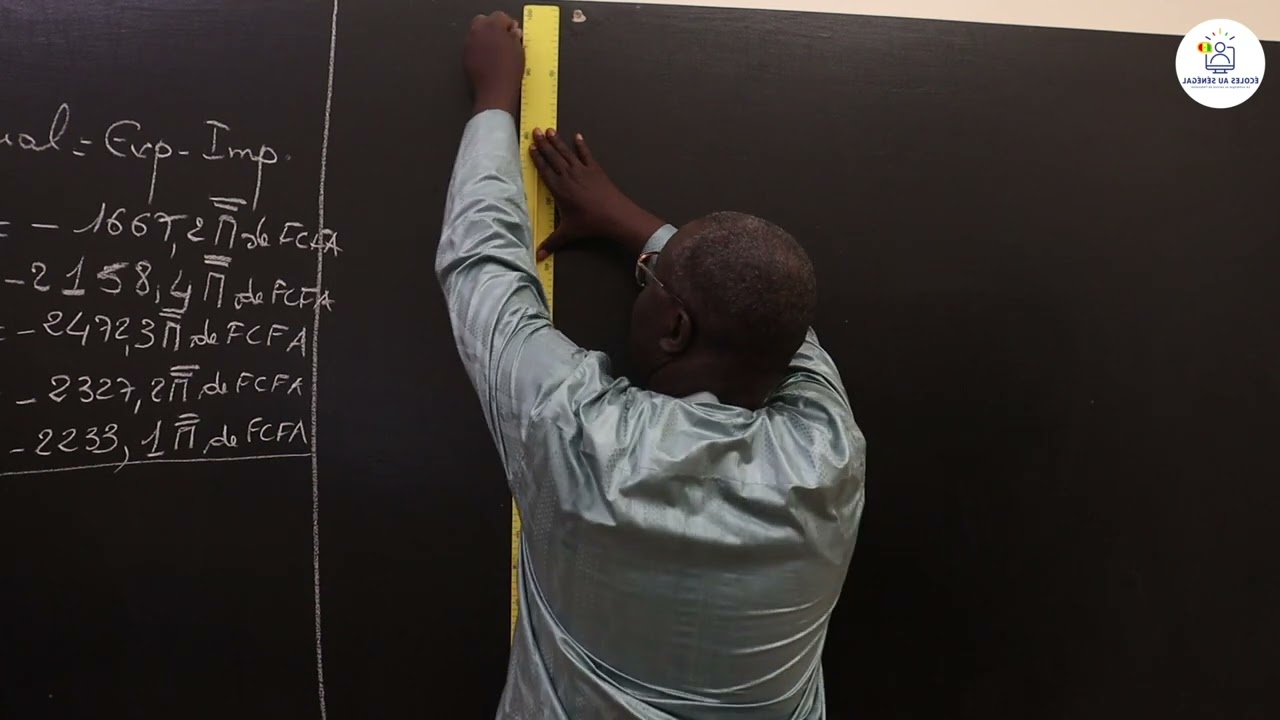 ual = Exp - Imp.
= - 1667,2 M de FCFA
- 2158,4 M de FCFA
= - 2472,3 M de FCFA
- 2327,2 M de FCFA
- 2233,1 M de FCFA
ÉCOLES AU SÉNÉGAL